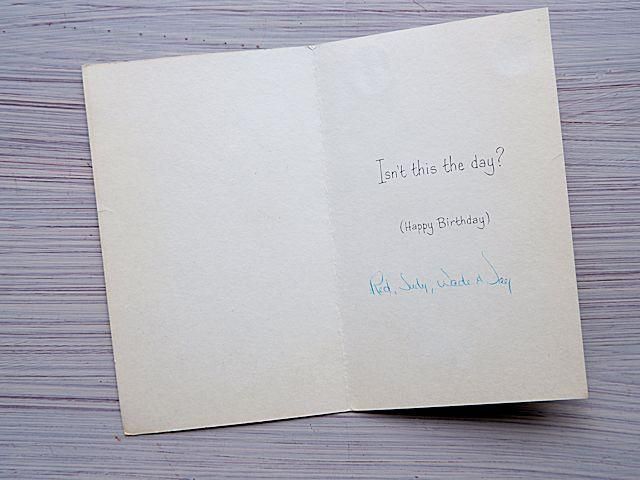 Isn't this the day?
(Happy Birthday)
Red, Judy, Wade & Jay